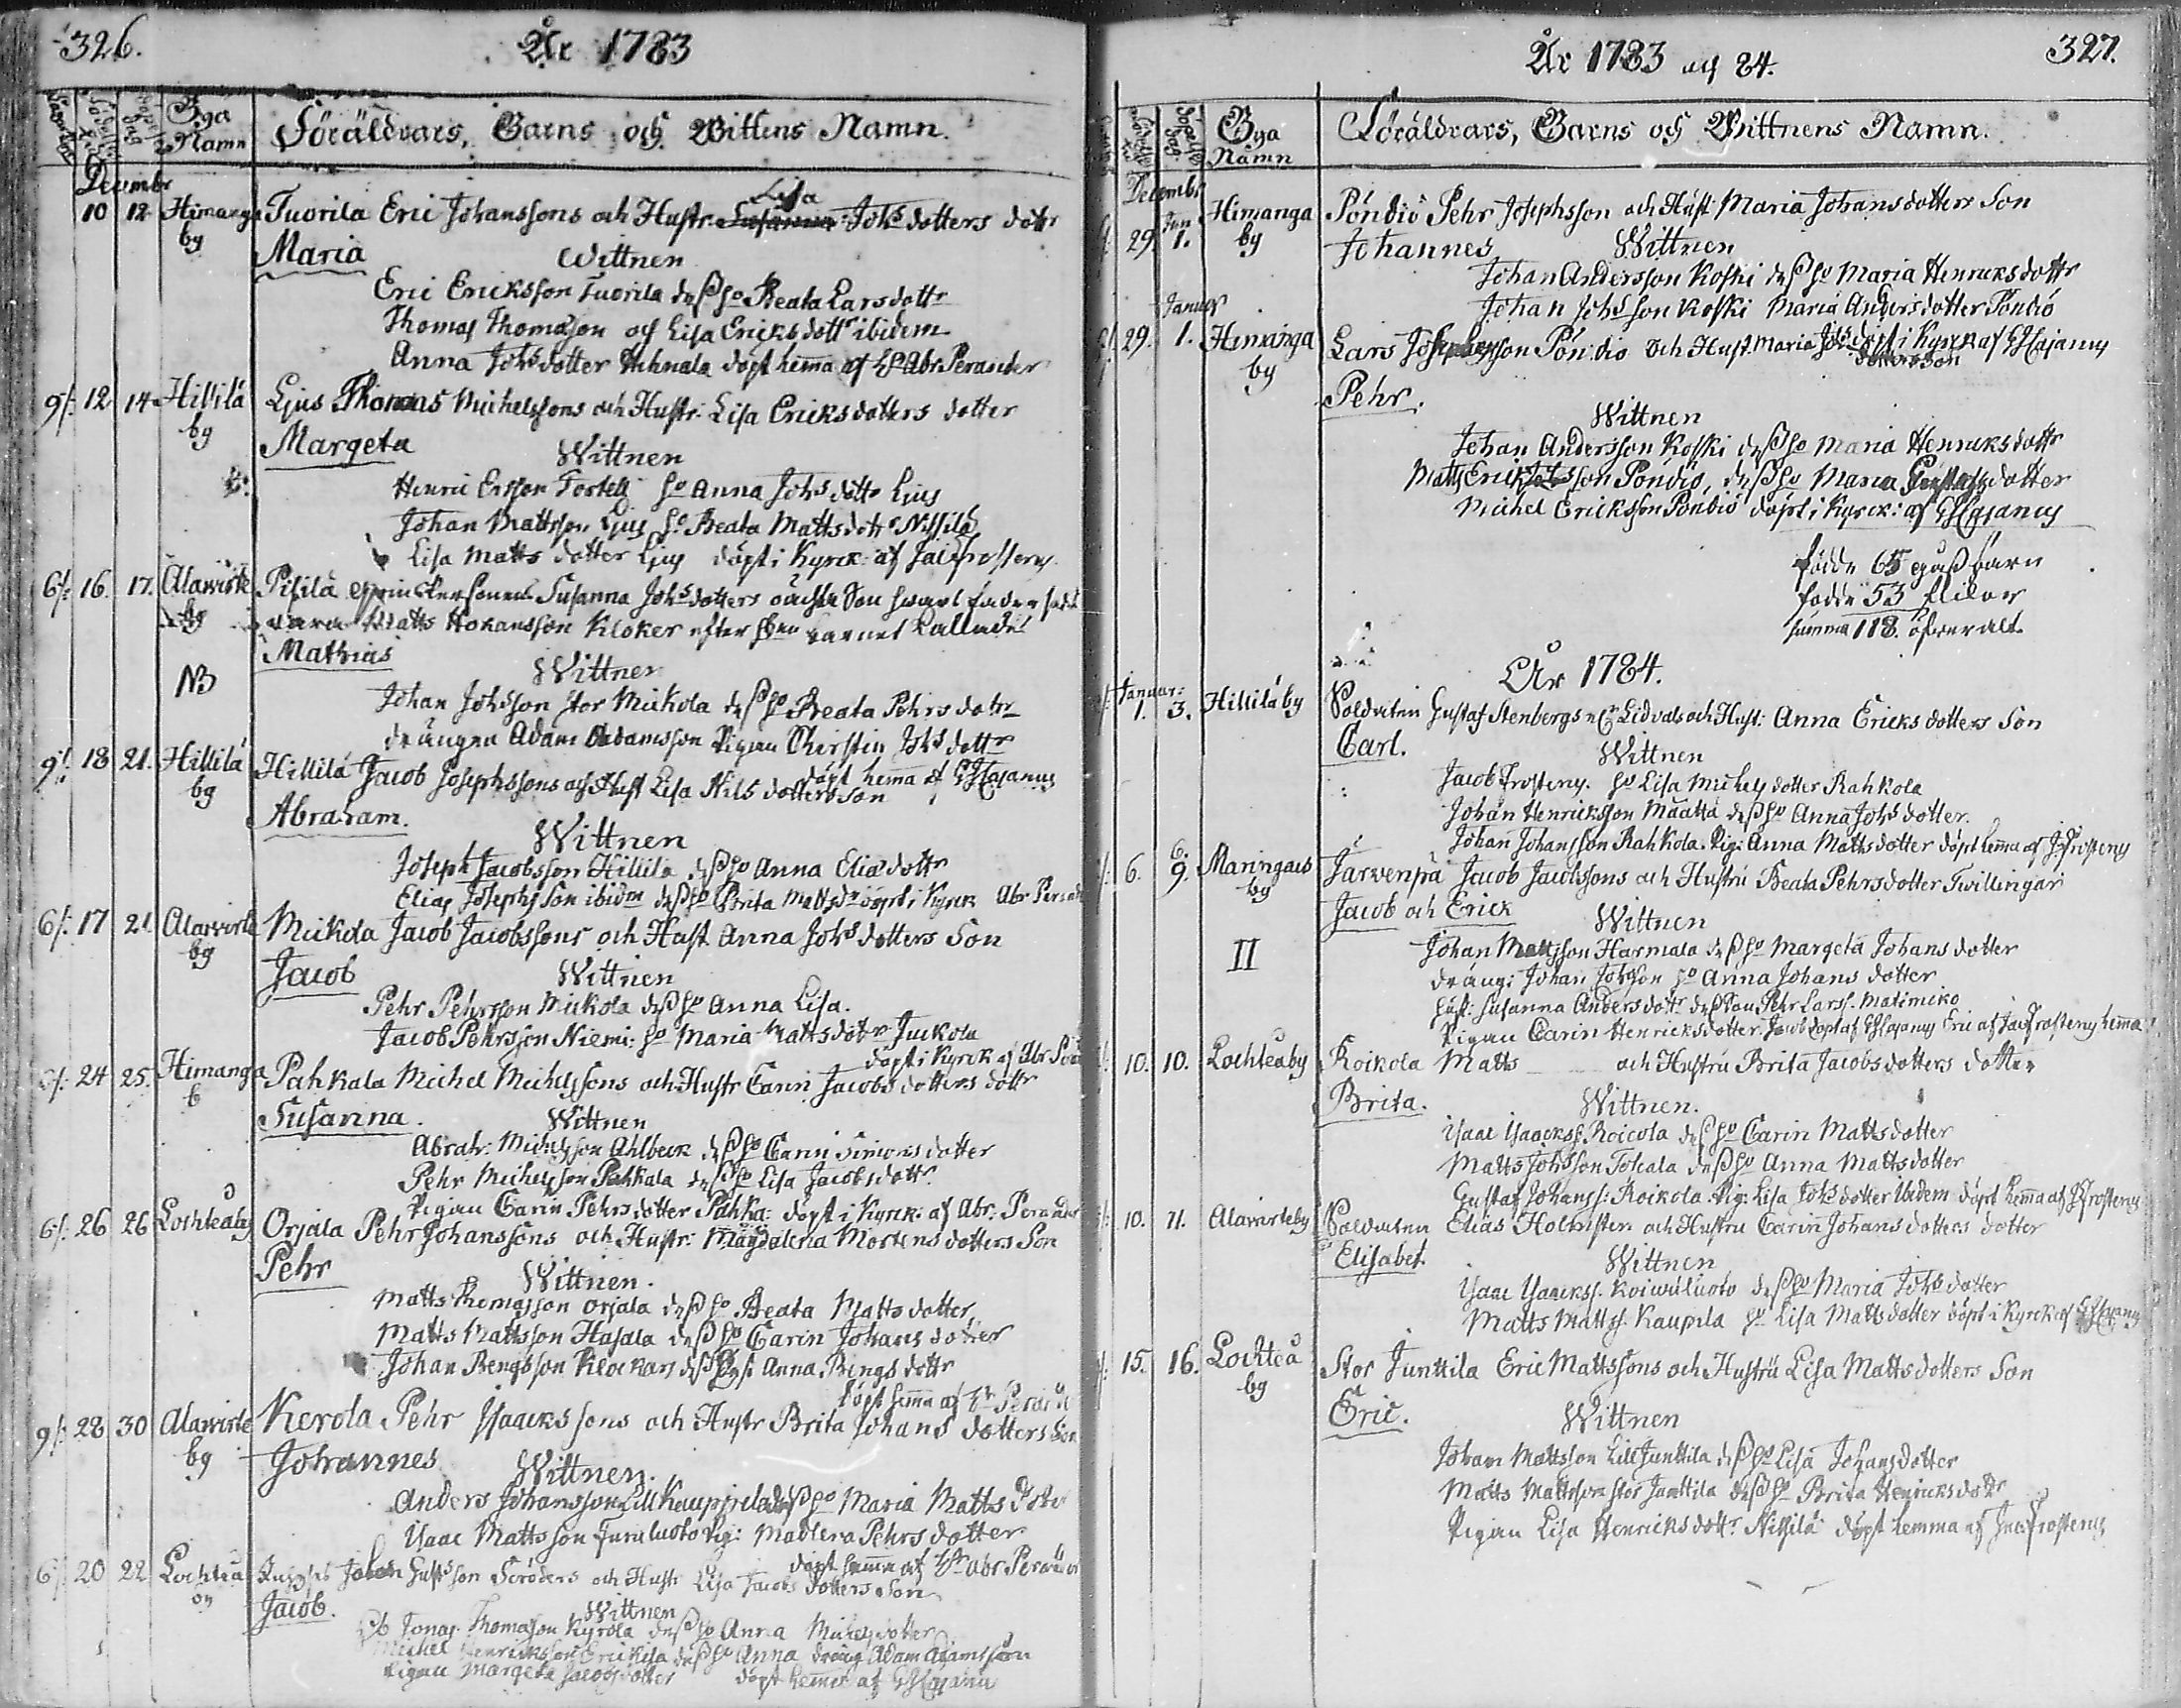 326.
År 1783
Bya Namn
Föräldrars, Barns och Wittens Namn.
Decembr
10 12 Himanga by Tuorila Eric Johanssons och Hustr. Lisa Johs dotters dottr
Maria
Wittnen
Eric Ericksson Tuorila dess ho Beata Larsdottr
Thomas Thomasson och Lisa Ericksdottr ibidem
Anna Johsdotter döpt hema af Hr Abr Perander
9/: 12 14 Hillilä by Ljus Thomas Michelssons och Hustr: Lisa Ericksdotters dotter
Margeta
Wittnen
Henric Ersson Tortell ho Anna Johs dottr Ljus
Johan Mattsson Ljus ho Beata Mattsdottr Nissilä
Lisa Matts dotter Ljus döpt i Kyrck: af Jac Frosterus
6/: 16. 17. Alawirte by Pisilä Susanna Johsdotters oächta Son hwars fader
vara Matts Hokansson Kloker efter barnet kallades
Mathias
NB
Wittnen
Johan Johsson stor Mickola dess ho Beata Pehrs dottr
drängen Adam Adamsson Pigan Chirstin Johs dottr
döpt hema af GHCajanus
9/: 18 21. Hillilä by Hillilä Jacob Josephssons och Hust Lisa Nils dotters son
Abraham.
Wittnen
Joseph Jacobsson Hillilä dess ho Anna Eliædottr
Elias Josephsson ibidm dess ho Brita Matts dr döpt i Kyrck Abr
6/: 17 21 Alawirte by Mickola Jacob Jacobssons och Hust Anna Johs dotters Son
Jacob
Wittnen
Pehr Pehrsson Mickola dess ho Anna Lisa.
Jacob Pehrsson Niemi: ho Maria Mattsdotr Juckola
döpt i Kyrck af Abr
6/: 24 25. Himanga b Pahkala Michel Michelssons och Hustr Carin Jacobs dotters dottr
Susanna.
Wittnen
Abrah: Michelsson Ahlbeck dess ho Carin Simons dotter
Pehr Michelsson Pahkala dess ho Lisa Jacobsdottr
Pigan Carin Pehrsdotter Pahka: döpt i Kyrck: af Abr: Perander
6/: 26 26 Lochteåby Orjala Pehr Johanssons och Hustr: Magdalena Mortens dotters Son
Pehr
Wittnen.
Matts Thomasson Orjala dess ho Beata Matts dotter
Matts Mattsson Hasala dess ho Carin Johans dotter
Johan Bengsson Klockars Anna Bengs dottr
döpt hema af Hr
9/: 28 30 Alawirte by Kerola Pehr Isaackssons och Hustr Brita Johans dotters Son
Johannes
Wittnen.
Anders Johansson Lill Kauppila dess ho Maria Matts doter
Isaac Mattsson Furuluoto Pig: Madlena Pehrs dotter
döpt hema af Hr Abr Perander
6/: 20 22 Lochteå by Johan Gustsson Söröders och Hustr Lisa Jacobs dotters Son
Jacob.
Wittnen
Jonas Thomasson Kyrola dess ho Anna Michels dotter
Michel Henricksson Erickila dess ho Anna dräng Adam Adamsson
Pigan Margeta Jacobsdotter döpt hema af GHCajanus
327.
År 1783 och 84.
Bya Namn
Föräldrars, Barns och Wittnens Namn.
Decembr
29. Jan 1. Himanga by Pöndiö Pehr Josephsson och Hust: Maria Johansdotters Son
Johannes
Wittnen
Johan Andersson Koski dess ho Maria Henricksdottr
Johan Johsson Koski Maria Andersdotter Pöndiö
döpt i Kyrck af GHCajanus
Januar
29. 1. Himanga by Lars Josephsson Pöndiö och Hust. Maria Johs dotters son
Pehr.
Wittnen
Johan Andersson Koski dess ho Maria Henricksdottr
Matts Ericksson Pöndiö, dess ho Maria Gustafsdotter
Michel Ericksson Pöndiö döpt i Kyrck: af GHCajanus
födde 65 gossbarn
födde 53 flickor
summa 118. öfveralt
År 1784.
Januar:
1. 3. Hillilä by Soldaten Gustaf Stenbergs Lidvals och Hust: Anna Ericks dotters Son
Carl.
Wittnen
Jacob Frosterus. ho Lisa Michels dotter Rahkola
Johan Henricksson Määttä dess ho Anna Johs dotter.
Johan Johansson Rahkola. Pig: Anna Mattsdotter döpt hema af J: Frosterus
6. 9. Maringais by Järvenpä Jacob Jacobssons och Hustru Beata Pehrsdotter Twillingar
Jacob och Erick
II
Wittnen
Johan Mattsson Harmala dess ho Margeta Johans dotter
dräng: Johan Johsson ho Anna Johans dotter
hust: Susanna Andersdotr dess Son Pehr Larss. Matimiko
Pigan Carin Henricksdotter. Jacob döpt af GHCajanus Eric af Jac Frosterus hema
10. 10. Lochteåby Roikola Matts och Hustru Brita Jacobsdotters dotter
Brita.
Wittnen.
Isaac Isaackss. Roicola dess ho Carin Matts dotter
Matts Johsson Tokala dess ho Anna Mattsdotter
Gustaf Johanss: Roikola. Pig: Lisa Johs dotter ibidem döpt hema af J: Frosterus
10. 11. Alawirteby Soldaten Elias Holmsten och Hustru Carin Johans dotters dotter
Elisabet
Wittnen
Isaac Isaackss. Koiwuluoto dess ho Maria Johs dotter
Matts Mattss. Kaupila ho Lisa Matts dotter döpt i Kyrck af GHCajanus
15. 16. Lochteå by Stor Junttila Eric Mattssons och Hustru Lisa Mattsdotters Son
Eric.
Wittnen
Johan Mattsson Lill Junttila dess ho Lisa Johansdotter
Matts Mattsson stor Junttila dess ho Brita Henricksdottr
Pigan Lisa Henricksdottr Nissilä döpt hemma af Jac Frosterus